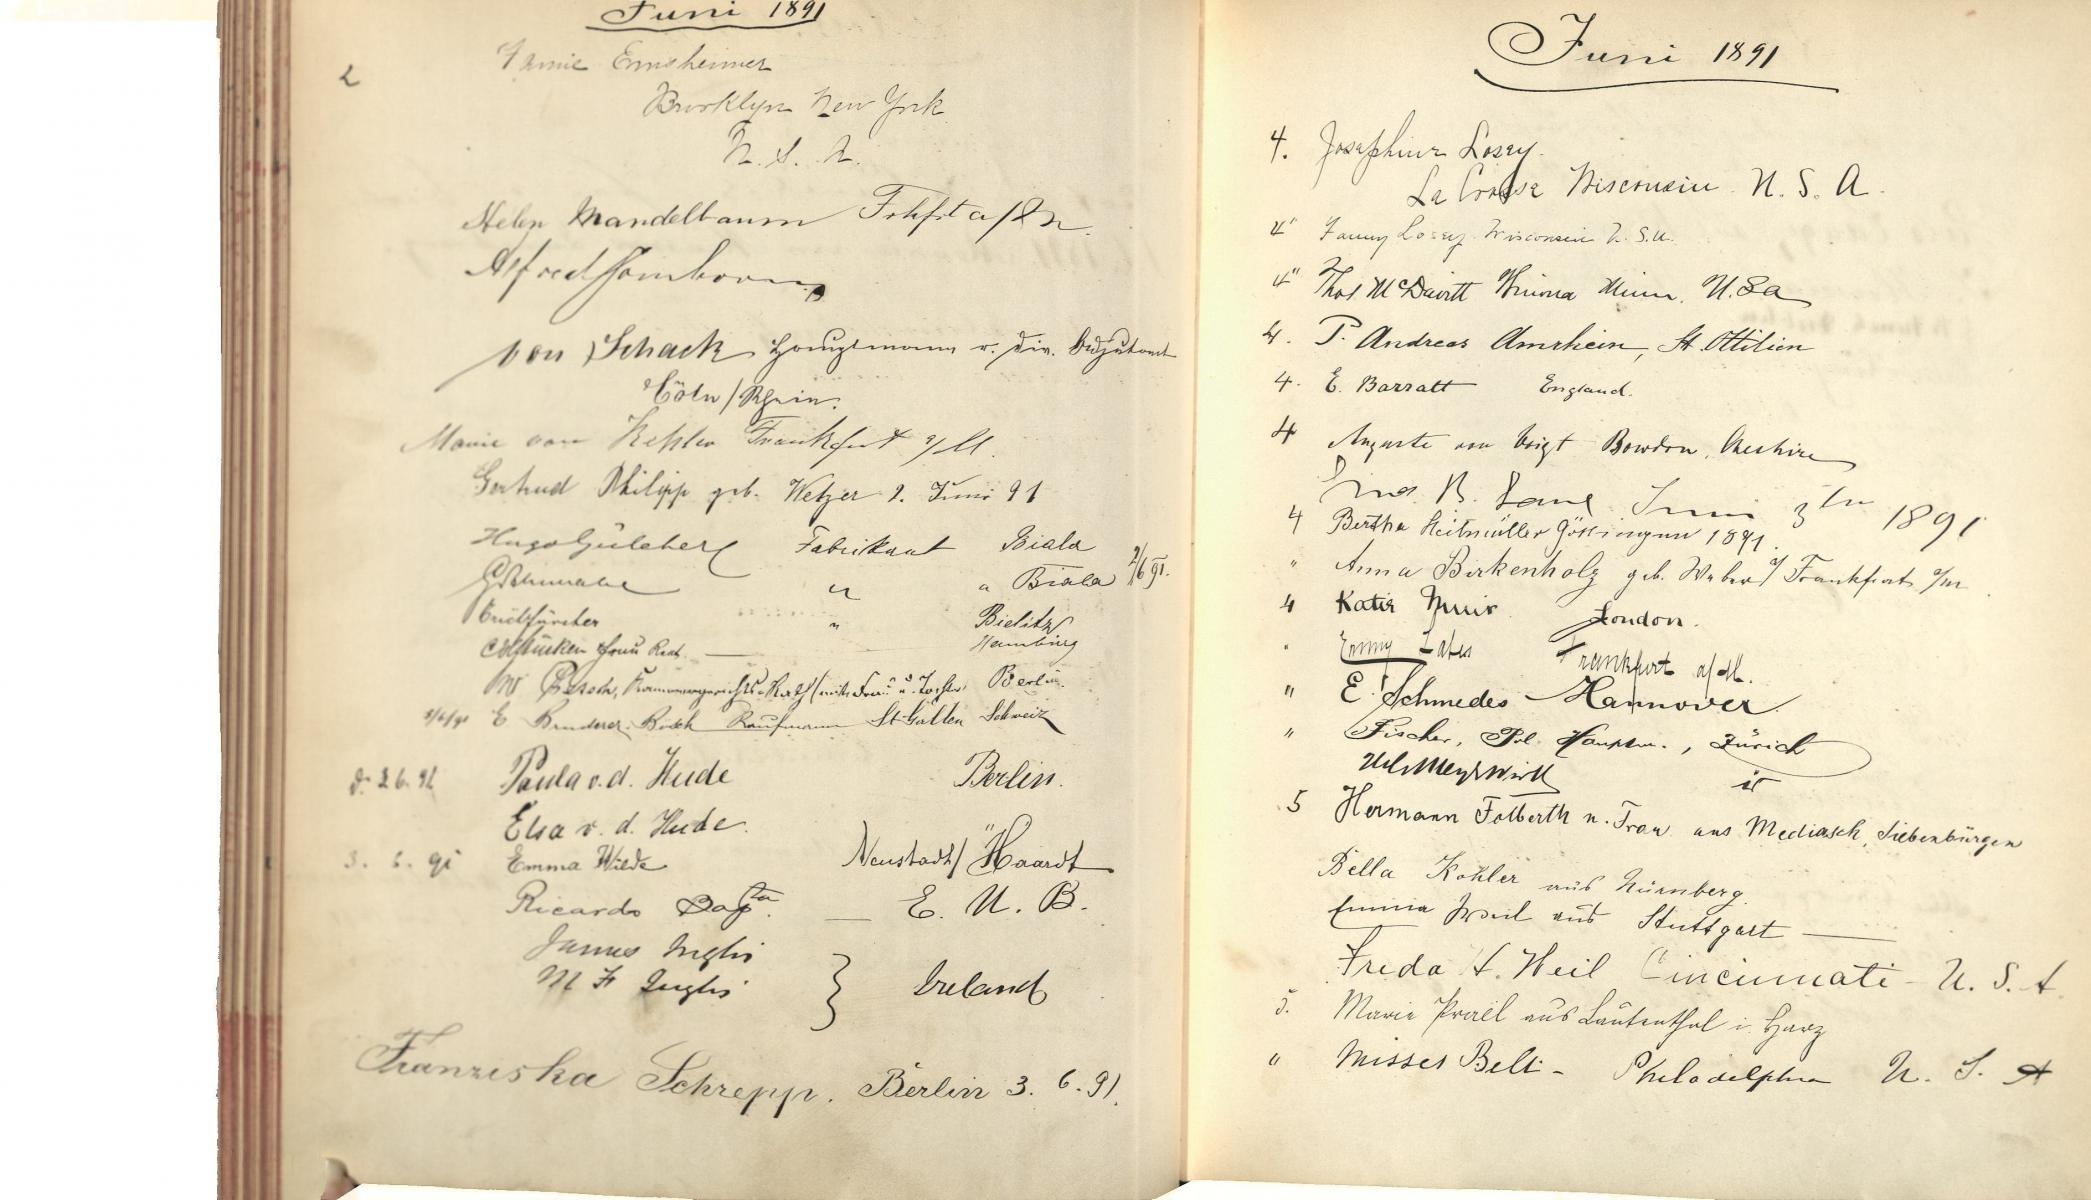 Juni 1891
2
Emsheimer
Brooklyn New York
U. S. A.
Helen Mandelbaum Frkfrt a/M
Alfred
von Schack Hauptmann u. Div. Adjutant
Cöln / Rhein.
Marie von Frankfurt a/M.
Gertrud Philipp geb. Wetzer 2. Juni 91
Hugo Gülcher Fabrikant Biala
" " Biala 2/6 91.
" Bielitz
Frau Hamburg
Kammergerichts-Rath (mit Frau u. Tochter) Berlin.
2/6/91 E Bruderer-Bösch Kaufmann St Gallen Schweiz
d. 2 6. 91 Paula v. d. Hude Berlin.
Elsa v. d. Hude.
3. 6. 91 Emma Wilde Neustadt / Haardt
Ricardo — E. U. B.
James Inglis
M F Inglis } Ireland
Franziska Schrepp. Berlin 3. 6. 91.
Juni 1891
4. Josephine Losey.
La Crosse Wisconsin U. S. A.
4" Fanny Losey. Wisconsin U. S. A.
4" Thos McDavitt Winona Minn. U.Sa
4. P. Andreas Amrhein, St. Ottilien
4. E. Barratt England.
4 Auguste von Voigt Bowdon, Cheshire
B. Lane Juni 3ten 1891
4 Bertha Heitmüller Göttingen 1891.
" Anna Birkenholz geb. Weber Frankfurt a/m
4 Katie Muir London.
" Emmy Frankfurt a/M.
" E. Schmedes — Hannover
" Fischer, Pol. Hauptm., Zürich
5 Hermann Folberth u. Frau aus Mediasch, Siebenbürgen
Bella Kohler aus Nürnberg.
Emma Weil aus Stuttgart —
Freda A. Weil Cincinnati - U. S. A
5. Marie Prael aus Lautenthal i. Harz
" Misses Belt - Philadelphia U. S. A